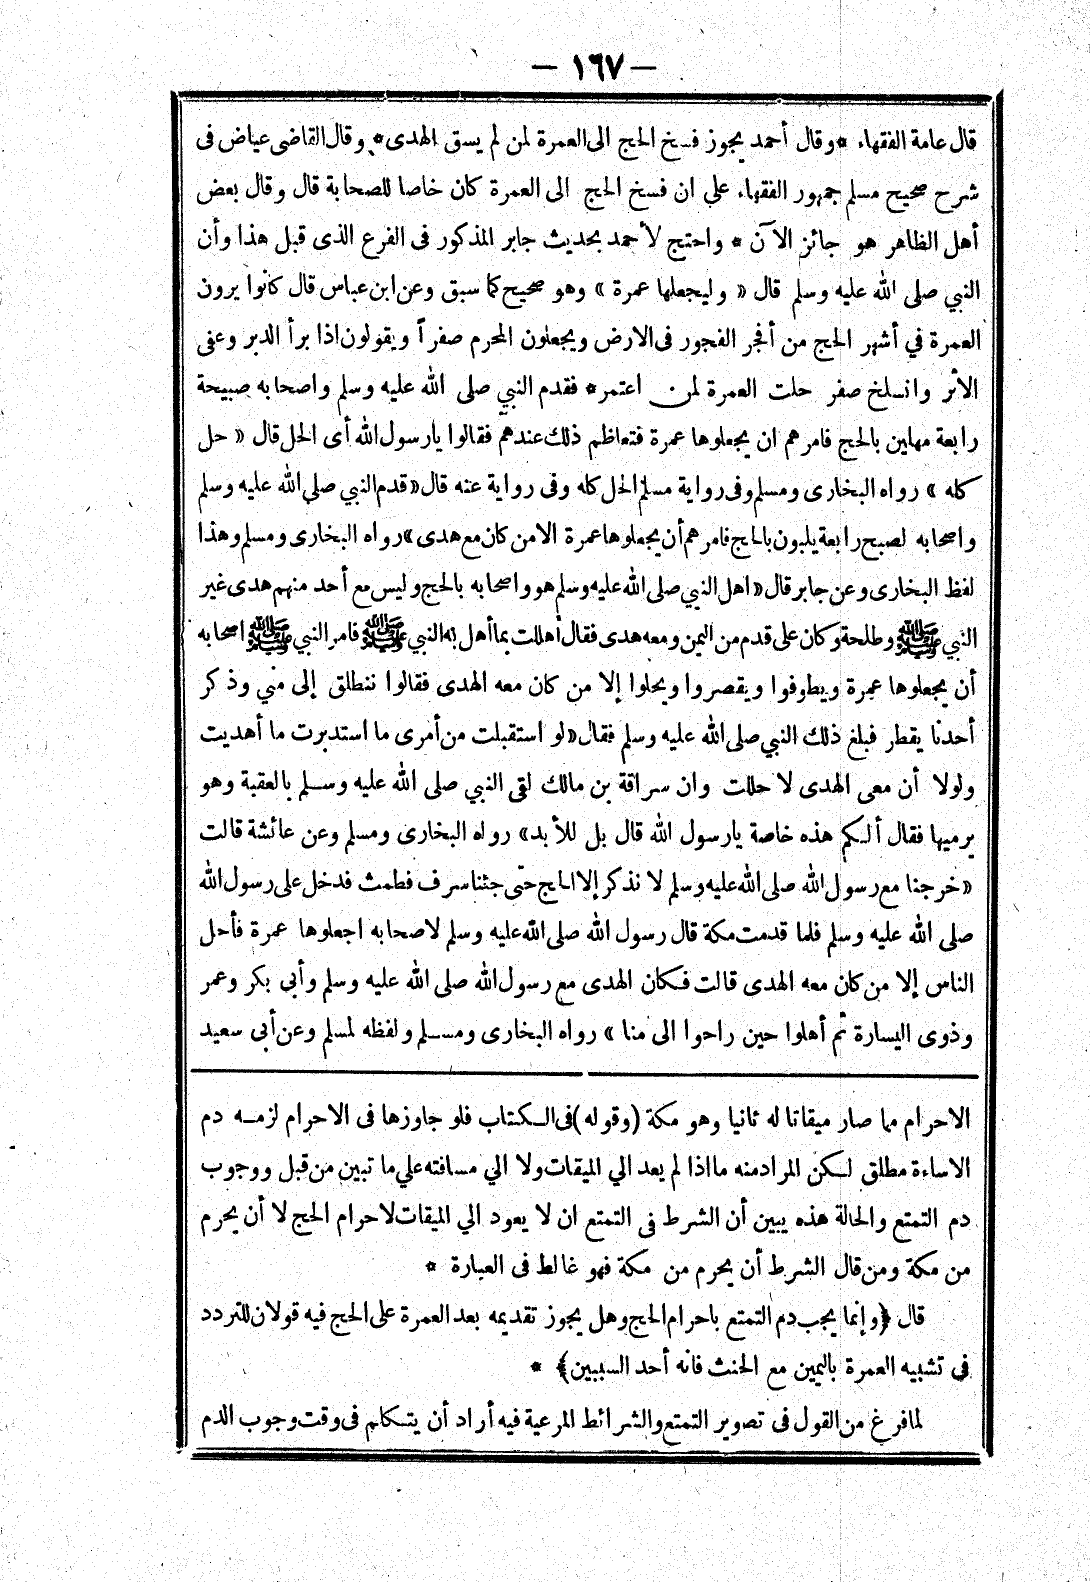 — ١٦٧ —
قال عامة الفقهاء * وقال أحمد يجوز فسخ الحج الى العمرة لمن لم يسق الهدى * وقال القاضى عياض فى
شرح صحيح مسلم جمهور الفقهاء علي ان فسخ الحج الى العمرة كان خاصا للصحابة قال وقال بعض
أهل الظاهر هو جائز الآن * واحتج لأحمد بحديث جابر المذكور فى الفرع الذى قبل هذا وأن
النبي صلى الله عليه وسلم قال « وليجعلها عمرة » وهو صحيح كما سبق وعن ابن عباس قال كانوا يرون
العمرة في أشهر الحج من أفجر الفجور فى الارض ويجعلون المحرم صفراً ويقولون اذا برأ الدبر وعفى
الأثر وانسلخ صفر حلت العمرة لمن اعتمر * فقدم النبي صلى الله عليه وسلم واصحابه صبيحة
رابعة مهلين بالحج فامرهم ان يجعلوها عمرة فتعاظم ذلك عندهم فقالوا يارسول الله أى الحل قال « حل
كله » رواه البخارى ومسلم وفى رواية مسلم الحل كله وفى رواية عنه قال « قدم النبي صلى الله عليه وسلم
واصحابه لصبح رابعة يلبون بالحج فامرهم أن يجعلوها عمرة الا من كان مع هدى » رواه البخارى ومسلم وهذا
لفظ البخارى وعن جابر قال « اهل النبي صلى الله عليه وسلم هو واصحابه بالحج وليس مع أحد منهم هدى غير
النبي ﷺ وطلحة وكان على قدم من اليمن ومعه هدى فقال أهللت بما أهل به النبي ﷺ فامر النبي ﷺ اصحابه
أن يجعلوها عمرة ويطوفوا ويقصروا ويحلوا إلا من كان معه الهدى فقالوا ننطلق إلى مني وذكر
أحدنا يقطر فبلغ ذلك النبي صلى الله عليه وسلم فقال « لو استقبلت من أمرى ما استدبرت ما أهديت
ولولا أن معى الهدى لاحللت وان سراقة بن مالك لقى النبي صلى الله عليه وسلم بالعقبة وهو
يرميها فقال ألكم هذه خاصة يارسول الله قال بل للأبد » رواه البخارى ومسلم وعن عائشة قالت
« خرجنا مع رسول الله صلى الله عليه وسلم لا نذكر إلا الحج حتى جئنا سرف فطمث فدخل على رسول الله
صلى الله عليه وسلم فلما قدمت مكة قال رسول الله صلى الله عليه وسلم لاصحابه اجعلوها عمرة فأحل
الناس إلا من كان معه الهدى قالت فكان الهدى مع رسول الله صلى الله عليه وسلم وأبي بكر وعمر
وذوى اليسارة ثم أهلوا حين راحوا الى منا » رواه البخارى ومسلم ولفظه لمسلم وعن أبى سعيد
الاحرام مما صار ميقاتا له ثانيا وهو مكة (وقوله) فى الكتاب فلو جاوزها فى الاحرام لزمه دم
الاساءة مطلق لكن المراد منه ما اذا لم يعد الي الميقات ولا الي مسافته علي ما تبين من قبل ووجوب
دم التمتع والحالة هذه يبين أن الشرط فى التمتع ان لا يعود الي الميقات لاحرام الحج لا أن يحرم
من مكة ومن قال الشرط أن يحرم من مكة فهو غالط فى العبارة *
قال ﴿وإنما يجب دم التمتع باحرام الحج وهل يجوز تقديمه بعد العمرة على الحج فيه قولان للتردد
فى تشبيه العمرة باليمين مع الحنث فانه أحد السببين﴾ *
لما فرغ من القول فى تصوير التمتع والشرائط المرعية فيه أراد أن يتكلم فى وقت وجوب الدم